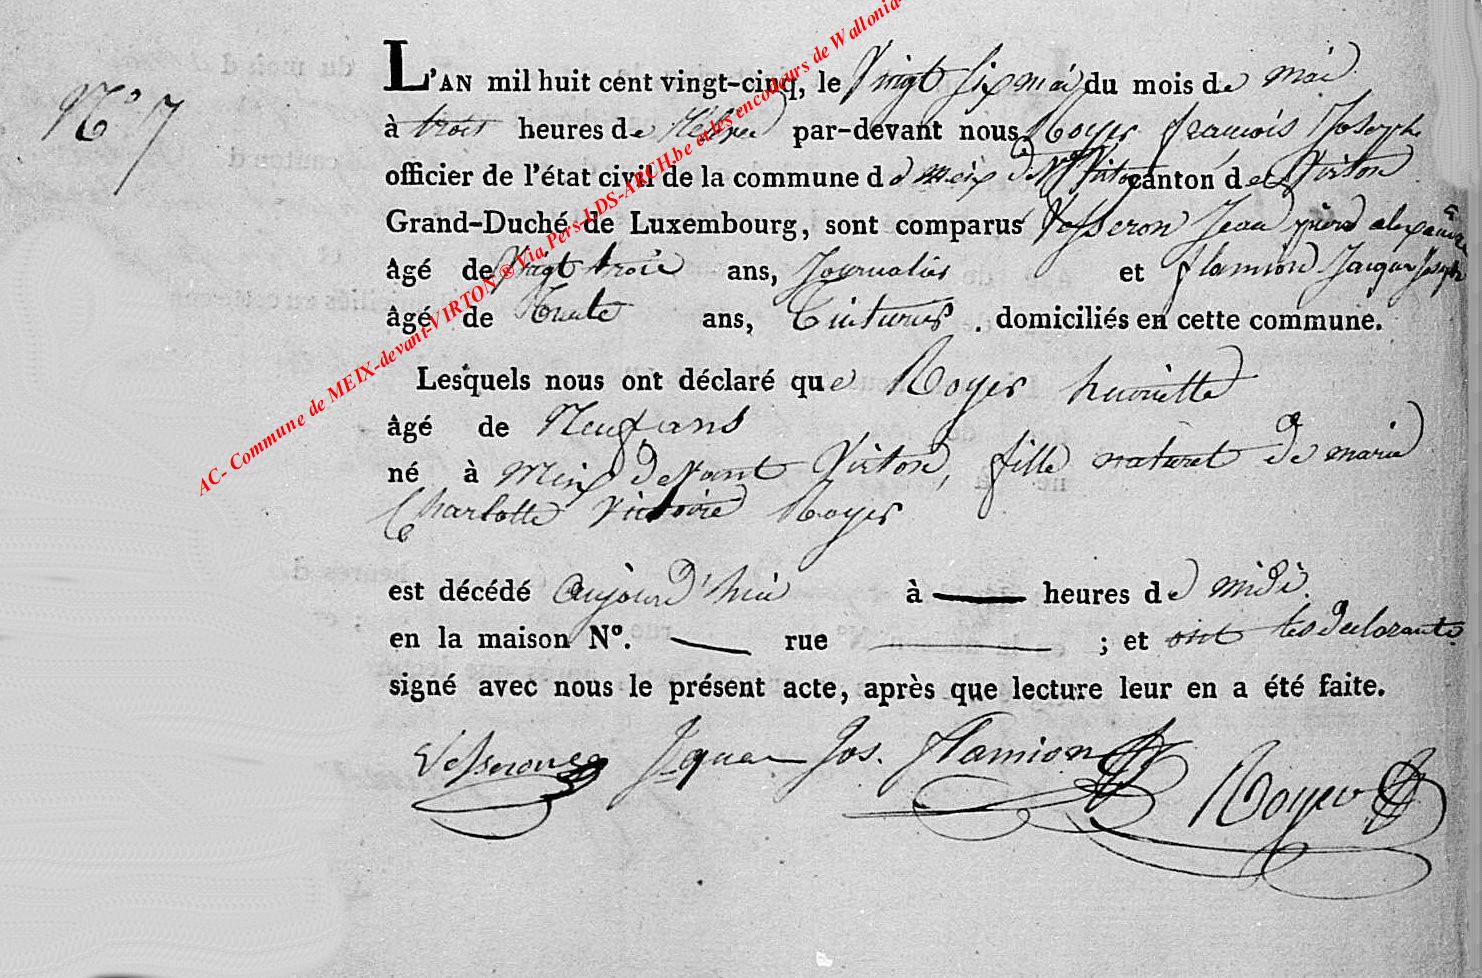 N° 7
L'AN mil huit cent vingt-cinq, le Vingt six mai du mois de mai
à trois heures de par-devant nous Royer françois Joseph
officier de l'état civil de la commune de meix dt Virton canton de Virton
Grand-Duché de Luxembourg, sont comparus Vesseron Jean pierre alexandre
âgé de Vingt trois ans, Journalier et flamion Jacque Joseph
âgé de trente ans, Cinturier . domiciliés en cette commune.
Lesquels nous ont déclaré que Royer henriette
âgé de Neuf ans
né à Meix Devant Virton, fille naturel De marie
Charlotte Victoire Royer
est décédé aujourd'hui à heures de midi.
en la maison N°. rue ; et ont les declarants
signé avec nous le présent acte, après que lecture leur en a été faite.
Vesseron Jque Jos. flamion Royer
AC- Commune de MEIX-devant-VIRTON ® Via Pers-LDS-ARCH.be et les encodeurs de Wallonia-